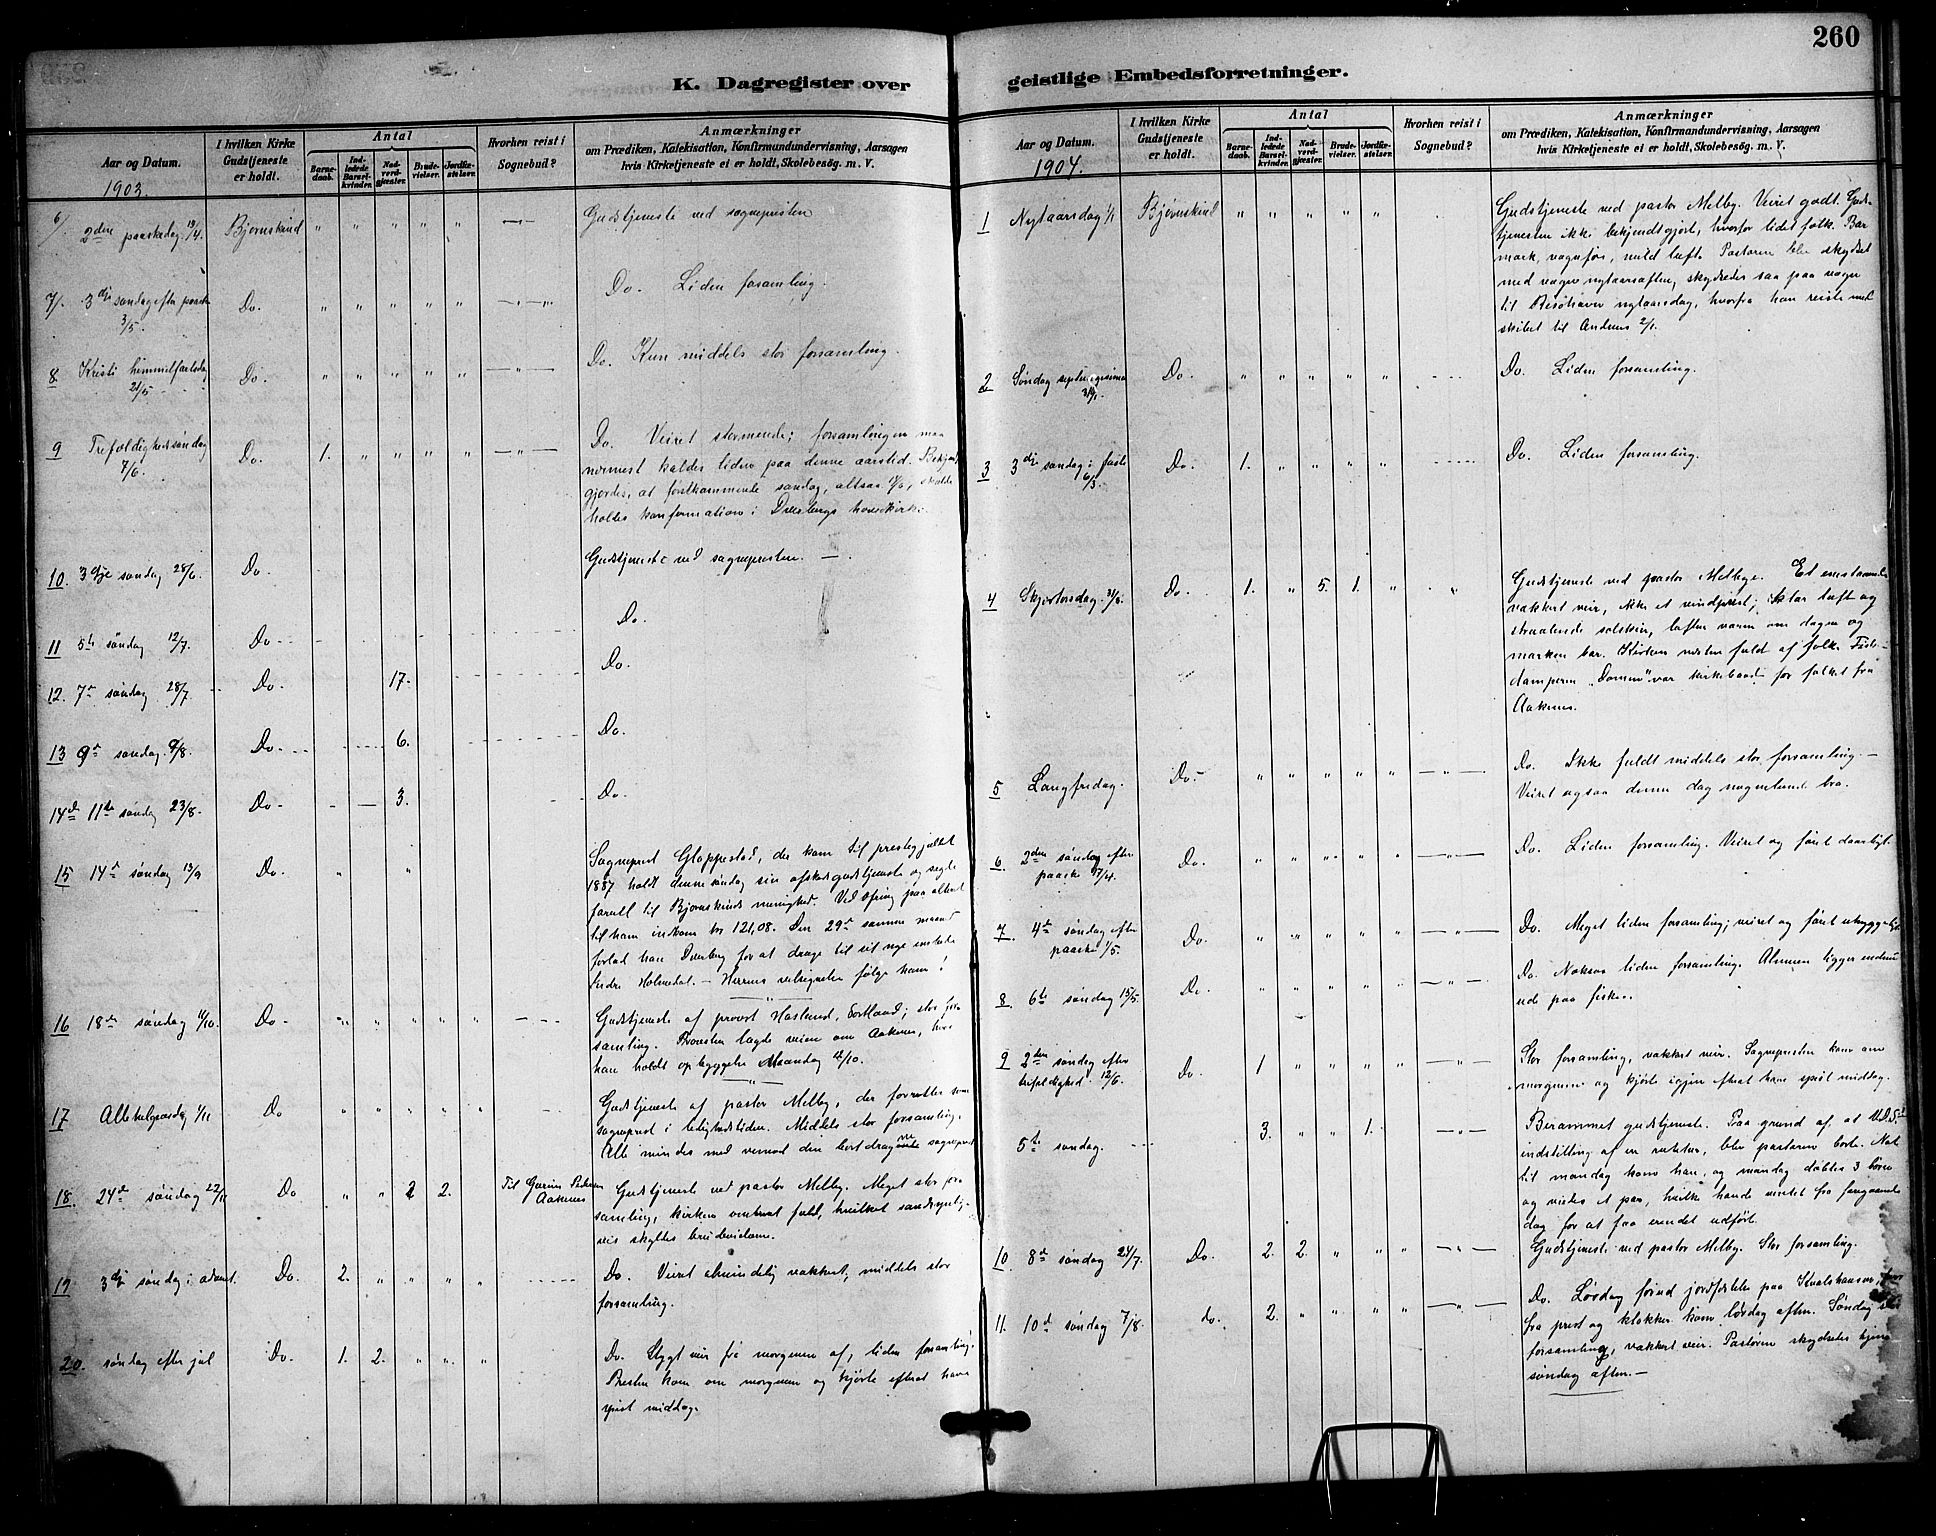 260
K. Dagregister over
geistlige Embedsforretninger.
Aar og Datum.
1903.
I hvilken Kirke
Gudstjeneste
er holdt.
Antal
Barne-
daab.
Ind-
ledede
Barsel-
kvinder.
Nad-
verd-
gjester.
Brude-
vielser.
Jordfæ-
stelser.
Hvorhen reist i
Sognebud?
Anmærkninger
om Prædiken, Katekisation, Konfirmandundervisning, Aarsagen
hvis Kirketjeneste ei er holdt, Skolebesøg. m. V.
6/ 2den paaskedag 13/4. Bjørnskind " " " " " Gudstjeneste ved sognepresten
7/. 3die søndag efter paaske Do. " " " " " Do. Liden forsamling.
3/5.
8 Kristi himmelfartsdag Do. " " " " " Do. Kun middels stor forsamling.
21/5
9 Trefoldighedssøndag Do. 1. " " " " Do. Veiret stormende; forsamlingen maa
7/6. nærmest kaldes liden paa denne aarstid. Bekjendt-
gjordes, at førstkommende søndag, altsaa 14/6, skulde
holdes konfirmation i Dverbergs hovedkirke
10. 3dje søndag 28/6. Do. Gudstjeneste ved sognepresten. —
11 5te søndag 12/7. Do Do.
12. 7de søndag 28/7 Do. 17. Do.
13 9de søndag 9/8. Do. 6. Do.
14de 11te søndag 23/8. Do. 3. Do.
15 14de søndag 13/9 Do. " " Sogneprest Gloppestad, der kom til prestegjældet
1887 holdt denne søndag sin afskedsgudstjeneste og sagde
farvel til Bjørnskinds menighed. Ved ofring paa alteret
til ham indkom kr 121,08. Den 29de samme maaned
forlod han Dverberg for at drage til sit nye embede
Indre Holmedal. — Herrens velsignelse følge ham!
16 18de søndag 11/10. Do. " " " " " Gudstjeneste af provst Haslund, Sortland; stor for-
samling. Provsten lagde veien om Aaknes, hvor
han holdt opbyggelse Maandag 12/10.
17 Allehelgensdag 1/11 Do " " " " " Gudstjeneste af pastor Melby, der forretter som
sogneprest i ledighedstiden. Middels stor forsamling.
Alle mindes med vemod den bortdragne sogneprest
18. 24de søndag 22/11 Do " " 2 2. Til Aaknes Gudstjeneste ved pastor Melby. Meget stor for-
samling, kirken omtrent fuld, hvilket sandsynlig-
vis skyldes brudevielserne.
19 3dje søndag i advent. Do. 2. " " " " Do. Veiret almindelig vakkert; middels stor
forsamling.
20. søndag efter jul Do. 1. 2. " " " Do. Stygt veir fra morgenen af; liden forsamling.
Presten kom om morgenen og kjørte efterat have
spist middag.
Aar og Datum.
1904.
I hvilken Kirke
Gudstjeneste
er holdt.
Antal
Barne-
daab.
Ind-
ledede
Barsel-
kvinder.
Nad-
verd-
gjester.
Brude-
vielser.
Jordfæ-
stelser.
Hvorhen reist i
Sognebud?
Anmærkninger
om Prædiken, Katekisation, Konfirmandundervisning, Aarsagen
hvis Kirketjeneste ei er holdt, Skolebesøg. m. V.
1 Nytaarsdag 1/1 Bjørnskind " " " " " Gudstjeneste ved pastor Melby. Veiret godt. Guds-
tjenesten ikke bekjendtgjort, hvorfor lidet folk. Bar
mark, vognføre, mild luft. Pastoren blev skydset
med vogn nytaarsaften, skydsedes saa paa vogn
til Risøhavn nytaarsdag, hvorfra han reiste med
skibet til Andenes 2/1.
2 Søndag septuagesima Do. " " " " " Do. Liden forsamling.
31/1.
3 3die søndag i faste Do. 1. " " " " Do. Liden forsamling.
6/3.
4 Skjærtorsdag. 31/3. Do. 1. " 5. 1. " Gudstjeneste ved pastor Melbye. Et enestaaende
vakkert veir, ikke et vindpust; klar luft og
straalende solskin, luften varm om dagen og
marken bar. Kirken næsten fuld af folk. Fiske-
damperen "Domen" var kirkebaad for folket fra
Aaknes.
5 Langfredag. Do. " " " " " Do. Ikke fuldt middels stor forsamling. —
Veiret ogsaa denne dag nogenlunde bra.
6 2den søndag efter Do. " " " " " Do. Liden forsamling. Veiret og føret daarligt.
paaske 17/4.
7. 4de søndag efter Do. " " " " " Do. Meget liden forsamling; veiret og føret uhyggeligt
paaske 1/5.
8 6te søndag 15/5. Do. " " " " " Do. Noksaa liden forsamling. Almuen ligger endnu
ud paa fisker.
9 2den søndag efter Do. 1 " " " " Stor forsamling, vakkert veir. Sognepresten kom om
trefoldighed. 12/6. morgenen og kjørte igjen efterat have spist middag.
5te søndag. 3. " " 1. " Berammet gudstjeneste. Paa grund af, at
indstilling af en rutetur, blev pastoren borte. Nat
til mandag kom han, og mandag døbtes 3 børn
og viedes et par, hvilke havde ventet fra foregaaende
dag for at faa erendet udført.
10 8de søndag 24/7. Do. 2. 2. " " " Gudstjeneste ved pastor Melby. Stor forsamling.
11. 10de søndag 7/8. do. 2. " " " " Do. Lørdag forud jordfæstelse paa Kvalshausen, hvor-
fra prest og klokker kom lørdag aften. Søndag stor
forsamling, vakkert veir. Pastoren skydsedes hjem
søndag aften. —